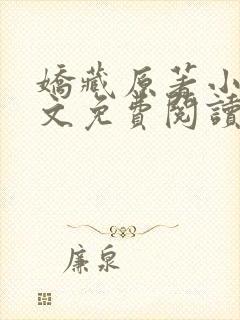 嬌藏原著小
文免費閱讀
廉泉